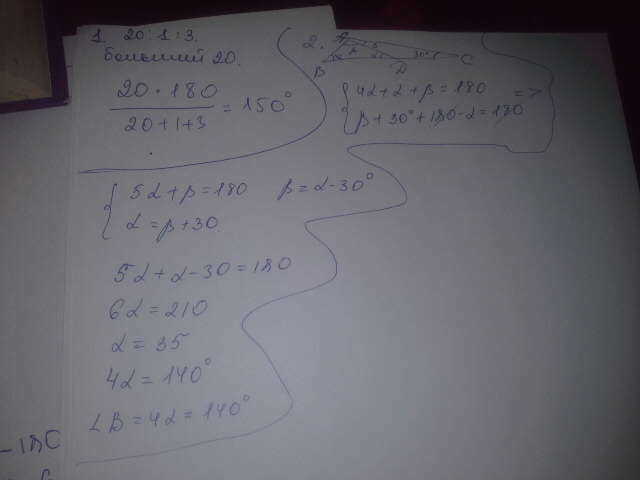 1. 20:1:3.
больший 20.
20 · 180
20+1+3
= 150°
2. A
B D C
30°
{ 4α+α+β=180
β+30°+180-α=180
=>
{ 5α+β=180 β=α-30°
α=β+30
5α+α-30=180
6α=210
α=35
4α=140°
∠B=4α=140°